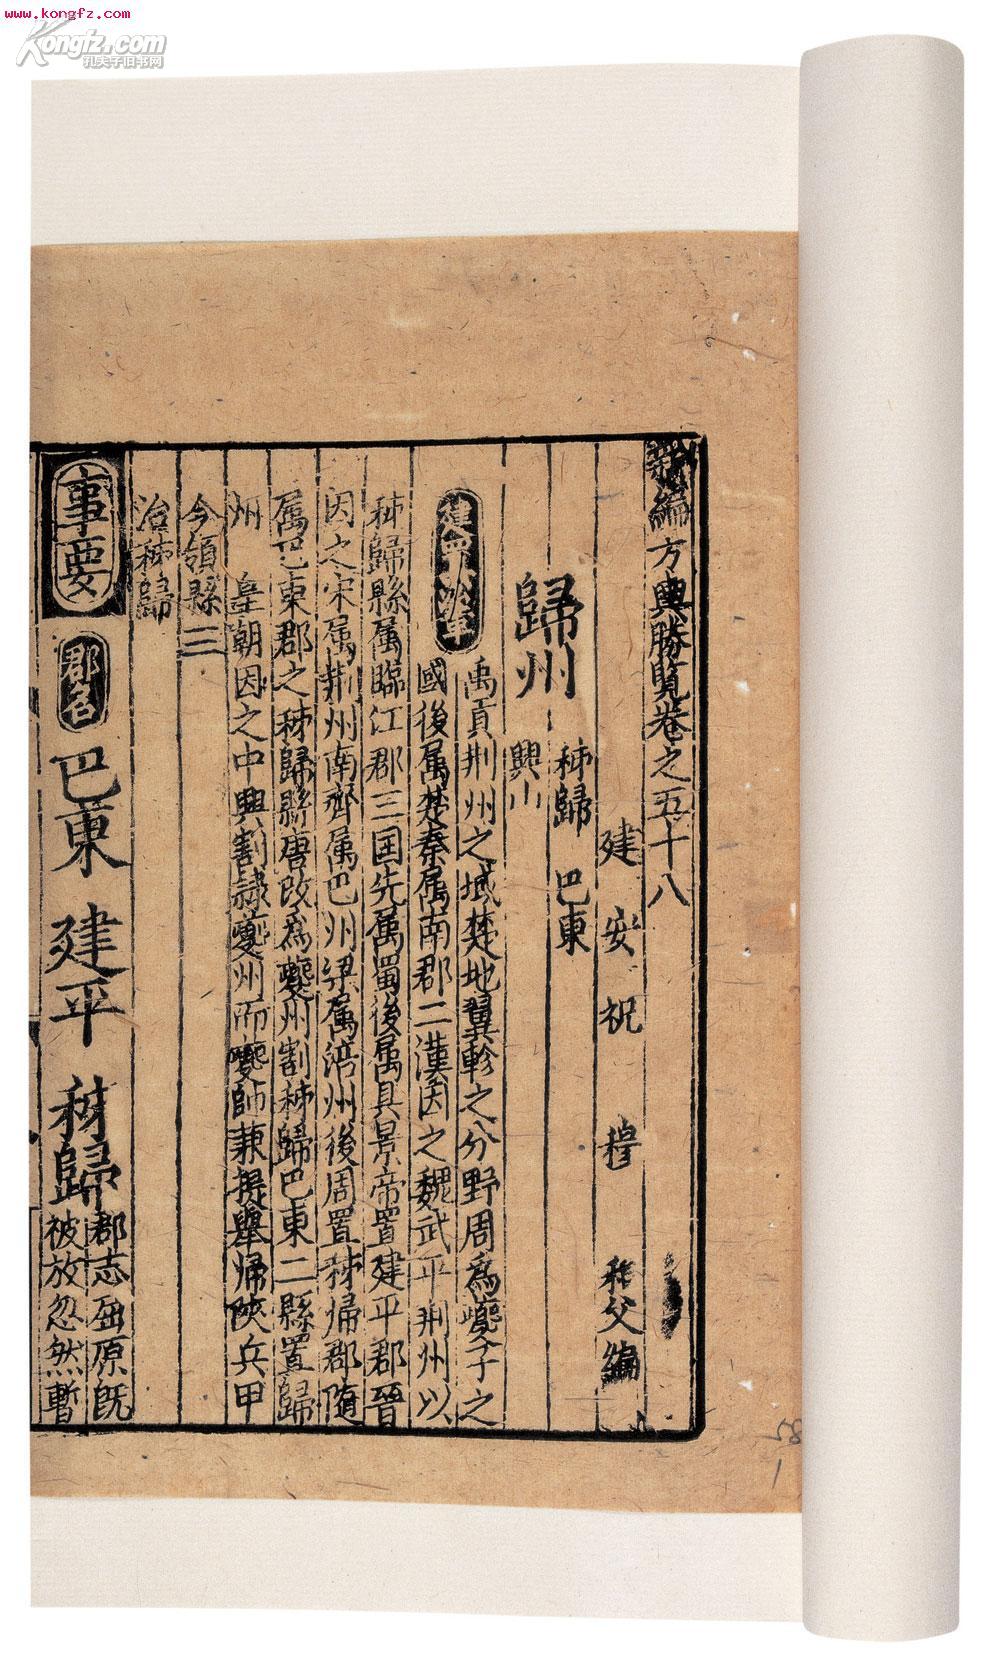 www.kongfz.com
Kongfz.com
孔夫子旧书网
新編方輿勝覽卷之五十八
建安祝穆和父編
秭歸 巴東
歸州
興山
建置沿革
禹貢荆州之域楚地翼軫之分野周爲夔子之
國後属楚秦属南郡二漢因之魏武平荆州以
秭歸縣属臨江郡三国先属蜀後属吳景帝置建平郡晉
因之宋属荆州南齊属巴州梁属信州後周置秭帰郡隋
属巴東郡之秭歸縣唐改爲夔州割秭歸巴東二縣置歸
州 皇朝因之中興割隷夔州而夔師兼提舉帰陝兵甲
今領縣三
治秭歸
事要
郡名
巴東 建平 秭歸
郡志屈原旣
被放忽然暫
58
1